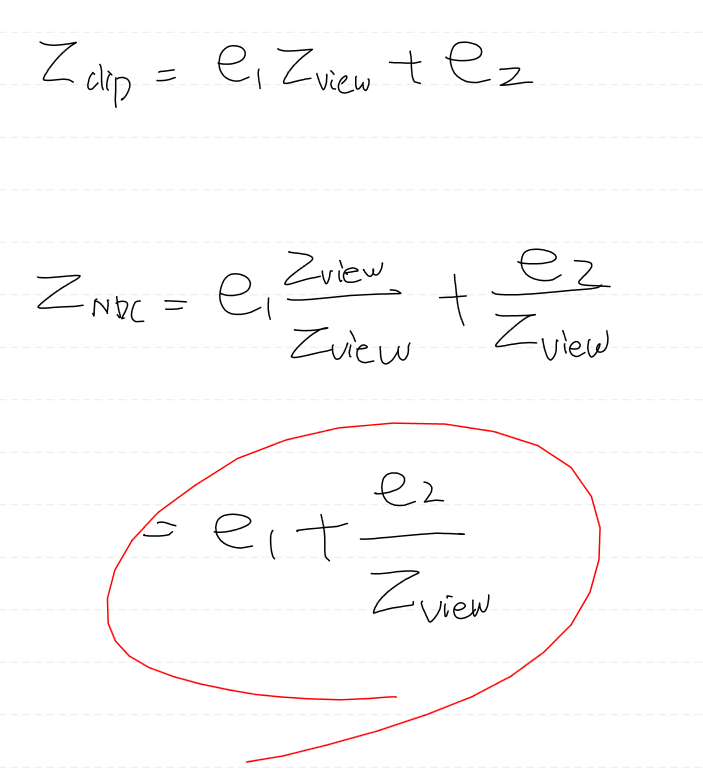 Z_clip = e_1 Z_view + e_2
Z_NDC = e_1 Z_view / Z_view + e_2 / Z_view
= e_1 + e_2 / Z_view